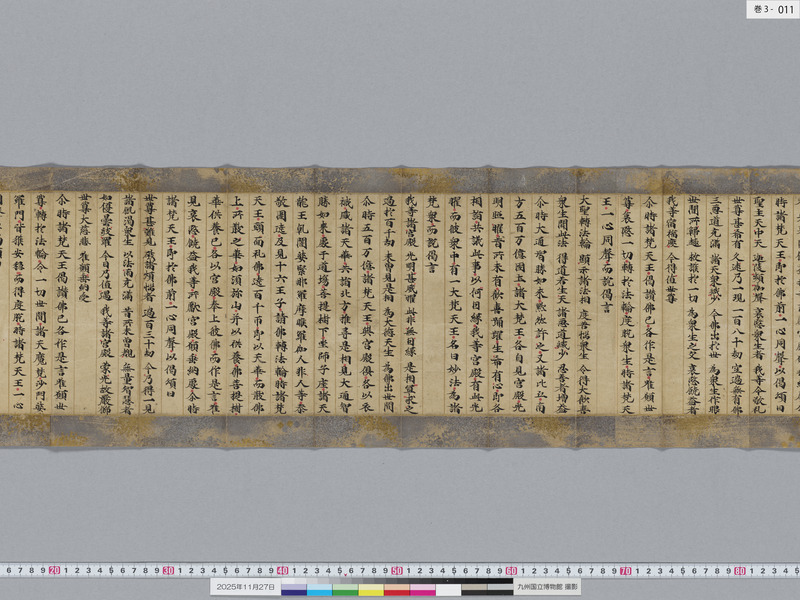 巻 3 - 011
時諸梵天王即於佛前一心同聲以偈頌曰
聖主天中天 迦陵頻伽聲 哀愍衆生者 我等今敬礼
世尊甚希有 久遠乃一現 一百八十劫 空過無有佛
三惡道充滿 諸天衆減少 今佛出於世 為衆生作眼
世間所歸趣 救護於一切 為衆生之父 哀愍饒益者
我等宿福慶 今得值世尊
尓時諸梵天王偈讚佛已各作是言唯願世
尊哀愍一切轉於法輪度脱衆生時諸梵天
王一心同聲而説偈言
大聖轉法輪 顯示諸法相 度苦惱衆生 令得大歡喜
衆生聞此法 得道若生天 諸惡道減少 忍善者增益
尓時大通智勝如来黙然許之又諸比丘南
方五百万億國土諸大梵王各自見宮殿光
明照曜昔所未有歡喜踊躍生希有心即各
相詣共議此事以何因縁我等宮殿有此光
曜而彼衆中有一大梵天王名曰妙法為諸
梵衆而説偈言
我等諸宮殿 光明甚威曜 此非無因縁 是相宜求之
過於百千劫 未曾見是相 為大德天生 為佛出世間
尓時五百万億諸梵天王與宮殿俱各以衣
裓盛諸天華共詣北方推尋是相見大通智
勝如来處于道場菩提樹下坐師子座諸天
龍王乾闥婆緊那羅摩睺羅伽人非人等恭
敬圍遶及見十六王子請佛轉法輪時諸梵
天王頭面礼佛遶百千帀即以天華而散佛
上所散之華如須弥山并以供養佛菩提樹
華供養已各以宮殿奉上彼佛而作是言唯
見哀愍饒益我等所獻宮殿願垂納受尓時
諸梵天王即於佛前一心同聲以偈頌曰
世尊甚難見 破諸煩惱者 過百三十劫 今乃得一見
諸飢渇衆生 以法雨充滿 昔所未曾覩 無量智慧者
如優曇鉢羅 今日乃值遇 我等諸宮殿 蒙光故嚴飾
世尊大慈愍 唯願垂納受
尓時諸梵天王偈讚佛已各作是言唯願世
尊轉於法輪令一切世間諸天魔梵沙門婆
羅門皆獲安隱而得度脱時諸梵天王一心
6 7 8 9 20 1 2 3 4 5 6 7 8 9 30 1 2 3 4 5 6 7 8 9 40 1 2 3 4 5 6 7 8 9 50 1 2 3 4 5 6 7 8 9 60 1 2 3 4 5 6 7 8 9 70 1 2 3 4 5 6 7 8 9 80 1 2 3 4 5
2025年11月27日
九州国立博物館 撮影